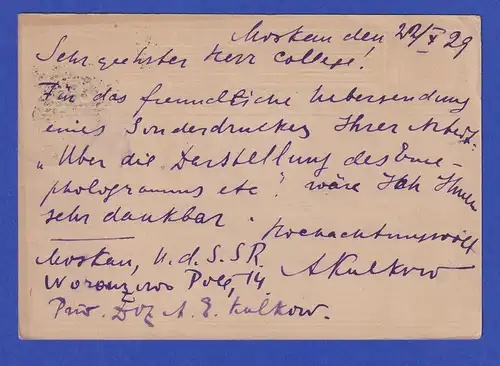 Moskau den 22/X 29
Sehr geehrter Herr College!
Für das freundliche Uebersendung
eines Sonderdruckes Ihrer Arbeit:
„Über die Darstellung des Ence-
phalogramms etc" wäre Ich Ihnen
sehr dankbar.
Hochachtungsvoll
AKulkow
Moskau, U.d.S.S.R.
Woronzowo Pole, 14
Priv. Doz A. E. Kulkow.